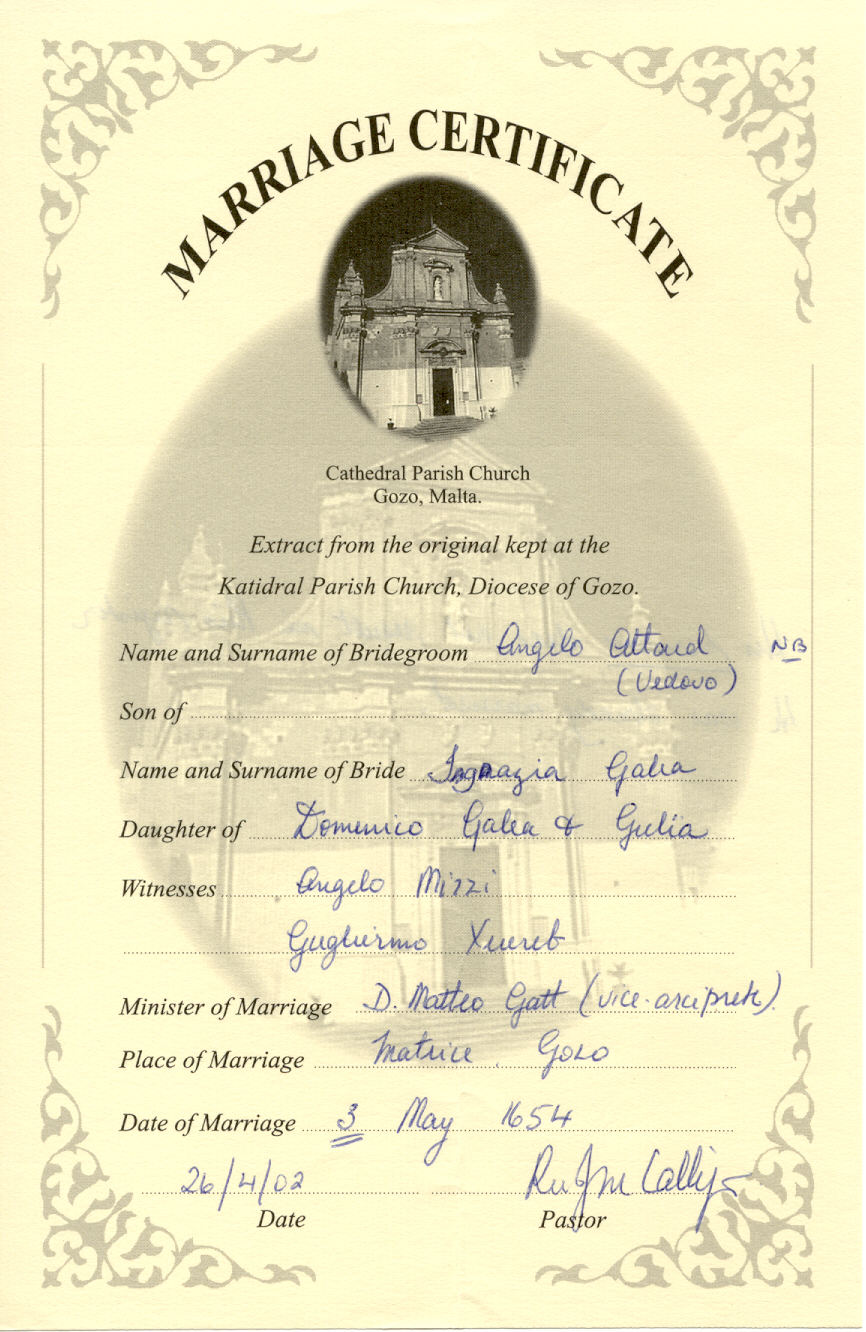 MARRIAGE CERTIFICATE
Cathedral Parish Church
Gozo, Malta.
Extract from the original kept at the
Katidral Parish Church, Diocese of Gozo.
Name and Surname of Bridegroom Angelo Attard NB
(Vedovo)
Son of
Name and Surname of Bride Ignazia Galea
Daughter of Domenico Galea & Gulia
Witnesses Angelo Mizzi
Gugliermo Xuereb
Minister of Marriage D. Matteo Gatt (vice-arciprete).
Place of Marriage Matrice. Gozo
Date of Marriage 3 May 1654
26/4/02
Date Pastor